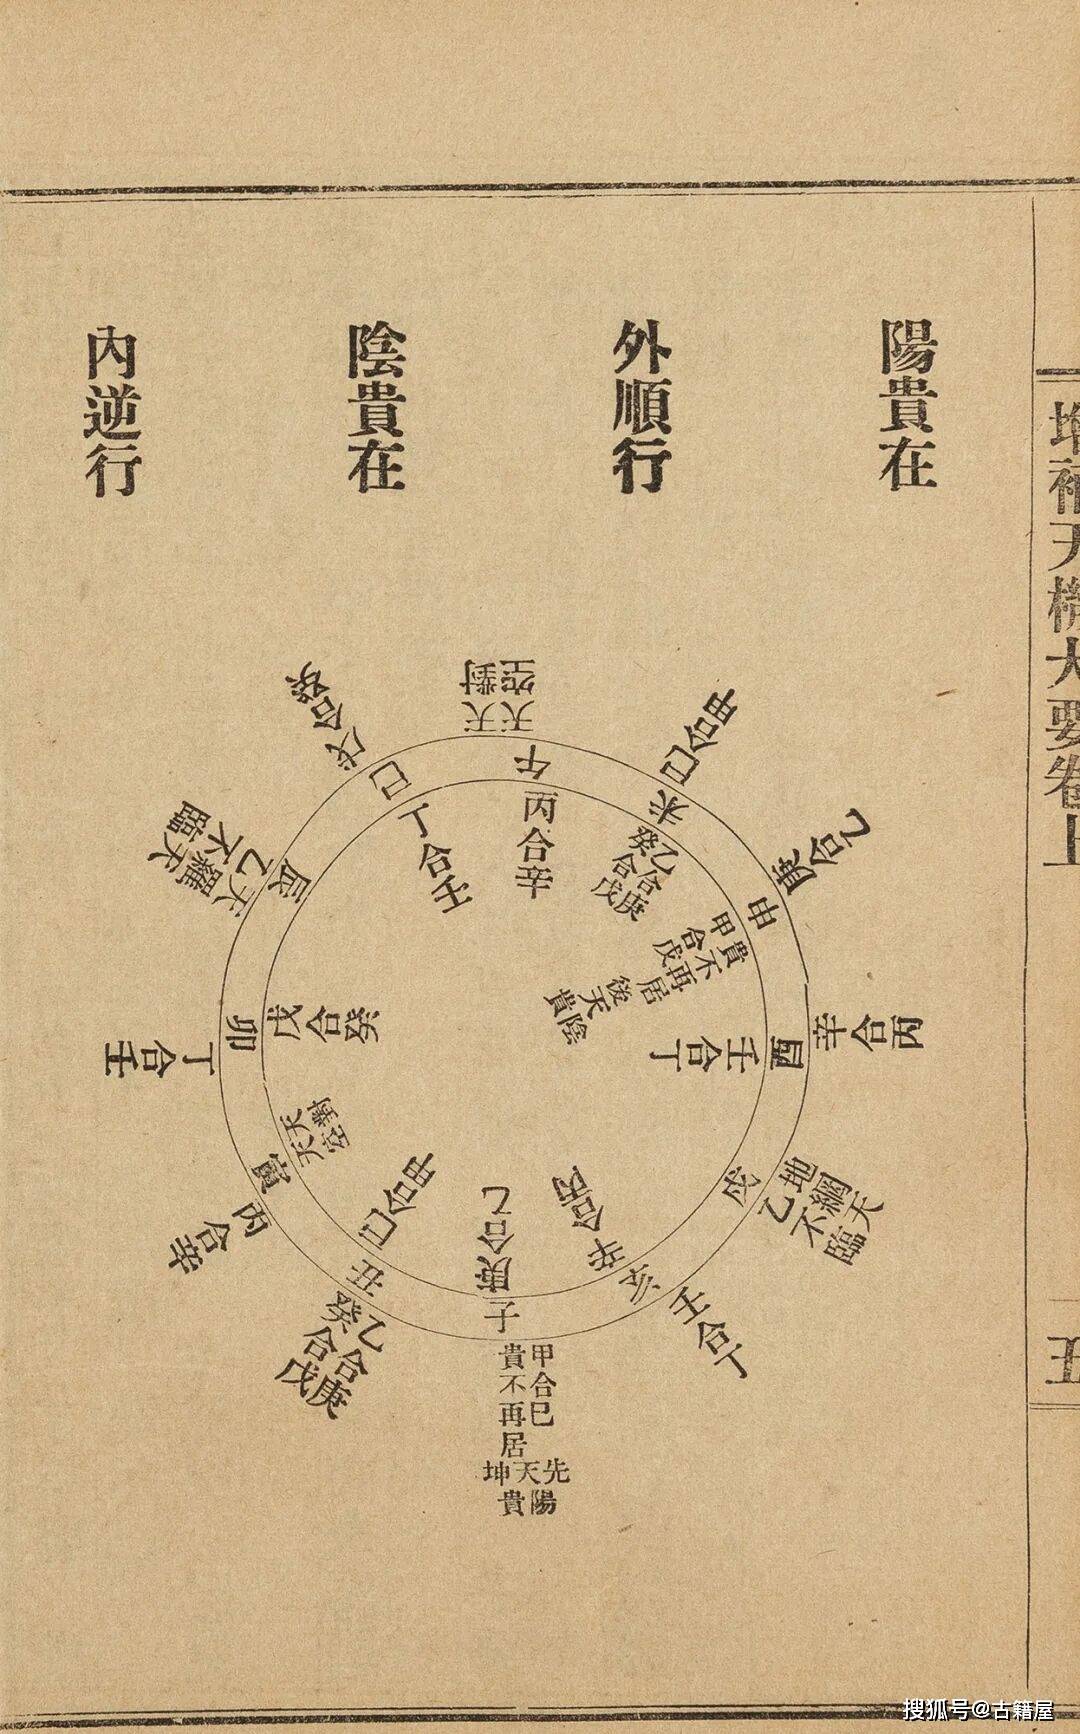 增補天機大要卷上
五
陽貴在
外順行
陰貴在
內逆行
午
天空
天對
丙合辛
未
甲合巳
乙合庚
癸合戊
申
庚合乙
甲合戊
貴不再居
後天
陰貴
酉
辛合丙
壬合丁
戌
地網天
乙不臨
亥
壬合丁
辛合丙
子
乙合庚
甲合巳
貴不再居
先天坤
陽貴
丑
甲合巳
乙合庚
癸合戊
寅
天空
天對
丙合辛
卯
戊合癸
丁合壬
辰
天羅天
乙不臨
巳
戊合癸
丁合壬
搜狐号@古籍屋